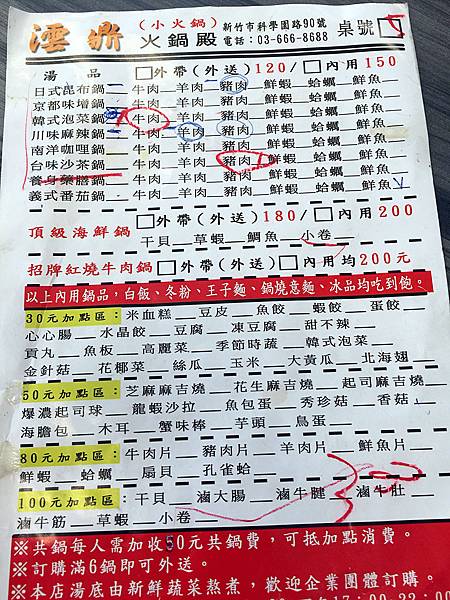 澐鼎 (小火鍋) 火鍋殿 新竹市科學園路90號 電話:03-666-8688 桌號
湯 品 □外帶(外送)120/□內用150
日式昆布鍋__牛肉__羊肉__豬肉__鮮蝦__蛤蠣__鮮魚__
京都味增鍋__牛肉__羊肉__豬肉__鮮蝦__蛤蠣__鮮魚__
韓式泡菜鍋__牛肉__羊肉__豬肉__鮮蝦__蛤蠣__鮮魚__
川味麻辣鍋__牛肉__羊肉__豬肉__鮮蝦__蛤蠣__鮮魚__
南洋咖哩鍋__牛肉__羊肉__豬肉__鮮蝦__蛤蠣__鮮魚__
台味沙茶鍋__牛肉__羊肉__豬肉__鮮蝦__蛤蠣__鮮魚__
養身藥膳鍋__牛肉__羊肉__豬肉__鮮蝦__蛤蠣__鮮魚__
義式番茄鍋__牛肉__羊肉__豬肉__鮮蝦__蛤蠣__鮮魚__
頂級海鮮鍋 □外帶(外送)180/□內用200
干貝__草蝦__鯛魚__小卷__
招牌紅燒牛肉鍋 □外帶(外送)□內用均200元
以上內用鍋品,白飯、冬粉、王子麵、鍋燒意麵、冰品均吃到飽。
30元加點區:米血糕__豆皮__魚餃__蝦餃__蛋餃__
心心腸__水晶餃__豆腐__凍豆腐__甜不辣__
貢丸__魚板__高麗菜__季節時蔬__韓式泡菜__
金針菇__花椰菜__絲瓜__玉米__大黃瓜__北海翅__
50元加點區:芝麻麻吉燒__花生麻吉燒__起司麻吉燒__
爆濃起司球__龍蝦沙拉__魚包蛋__秀珍菇__香菇__
海膽包__木耳__蟹味棒__芋頭__鳥蛋__
80元加點區:牛肉片__豬肉片__羊肉片__鮮魚片__
鮮蝦__蛤蠣__扇貝__孔雀蛤__
100元加點區:干貝__滷大腸__滷牛腱__滷牛肚__
滷牛筋__草蝦__小卷__
※共鍋每人需加收50元共鍋費,可抵加點消費。
※訂購滿6鍋即可外送。
※本店湯底由新鮮蔬菜熬煮,歡迎企業團體訂購。